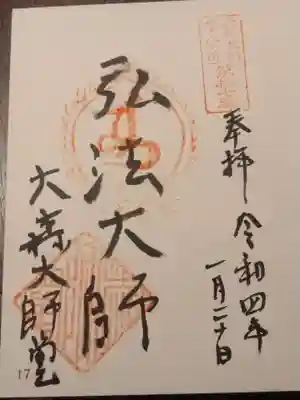 奉拝
令和四年
一月二十日
弘法大師
大森大師堂
17